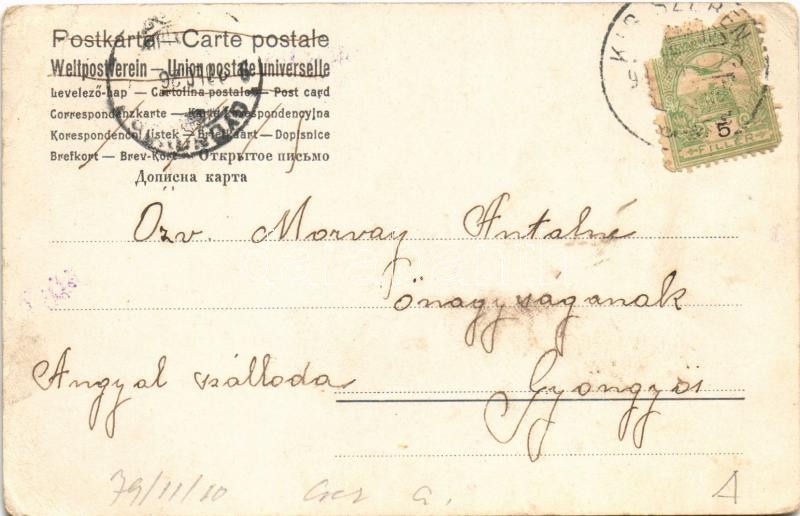 Postkarte — Carte postale
Weltpostverein — Union postale universelle
Levelező-lap — Cartolina postale — Post card
Correspondenzkarte — Karta korespondencyjna
Korespondenční lístek — Briefkaart — Dopisnice
Brefkort — Brev-Kort — Открытое письмо
Дописна карта
5
FILLÉR
Özv. Morvay Antalné
őnagyságának
Angyal szálloda
Gyöngyös
79/11/10